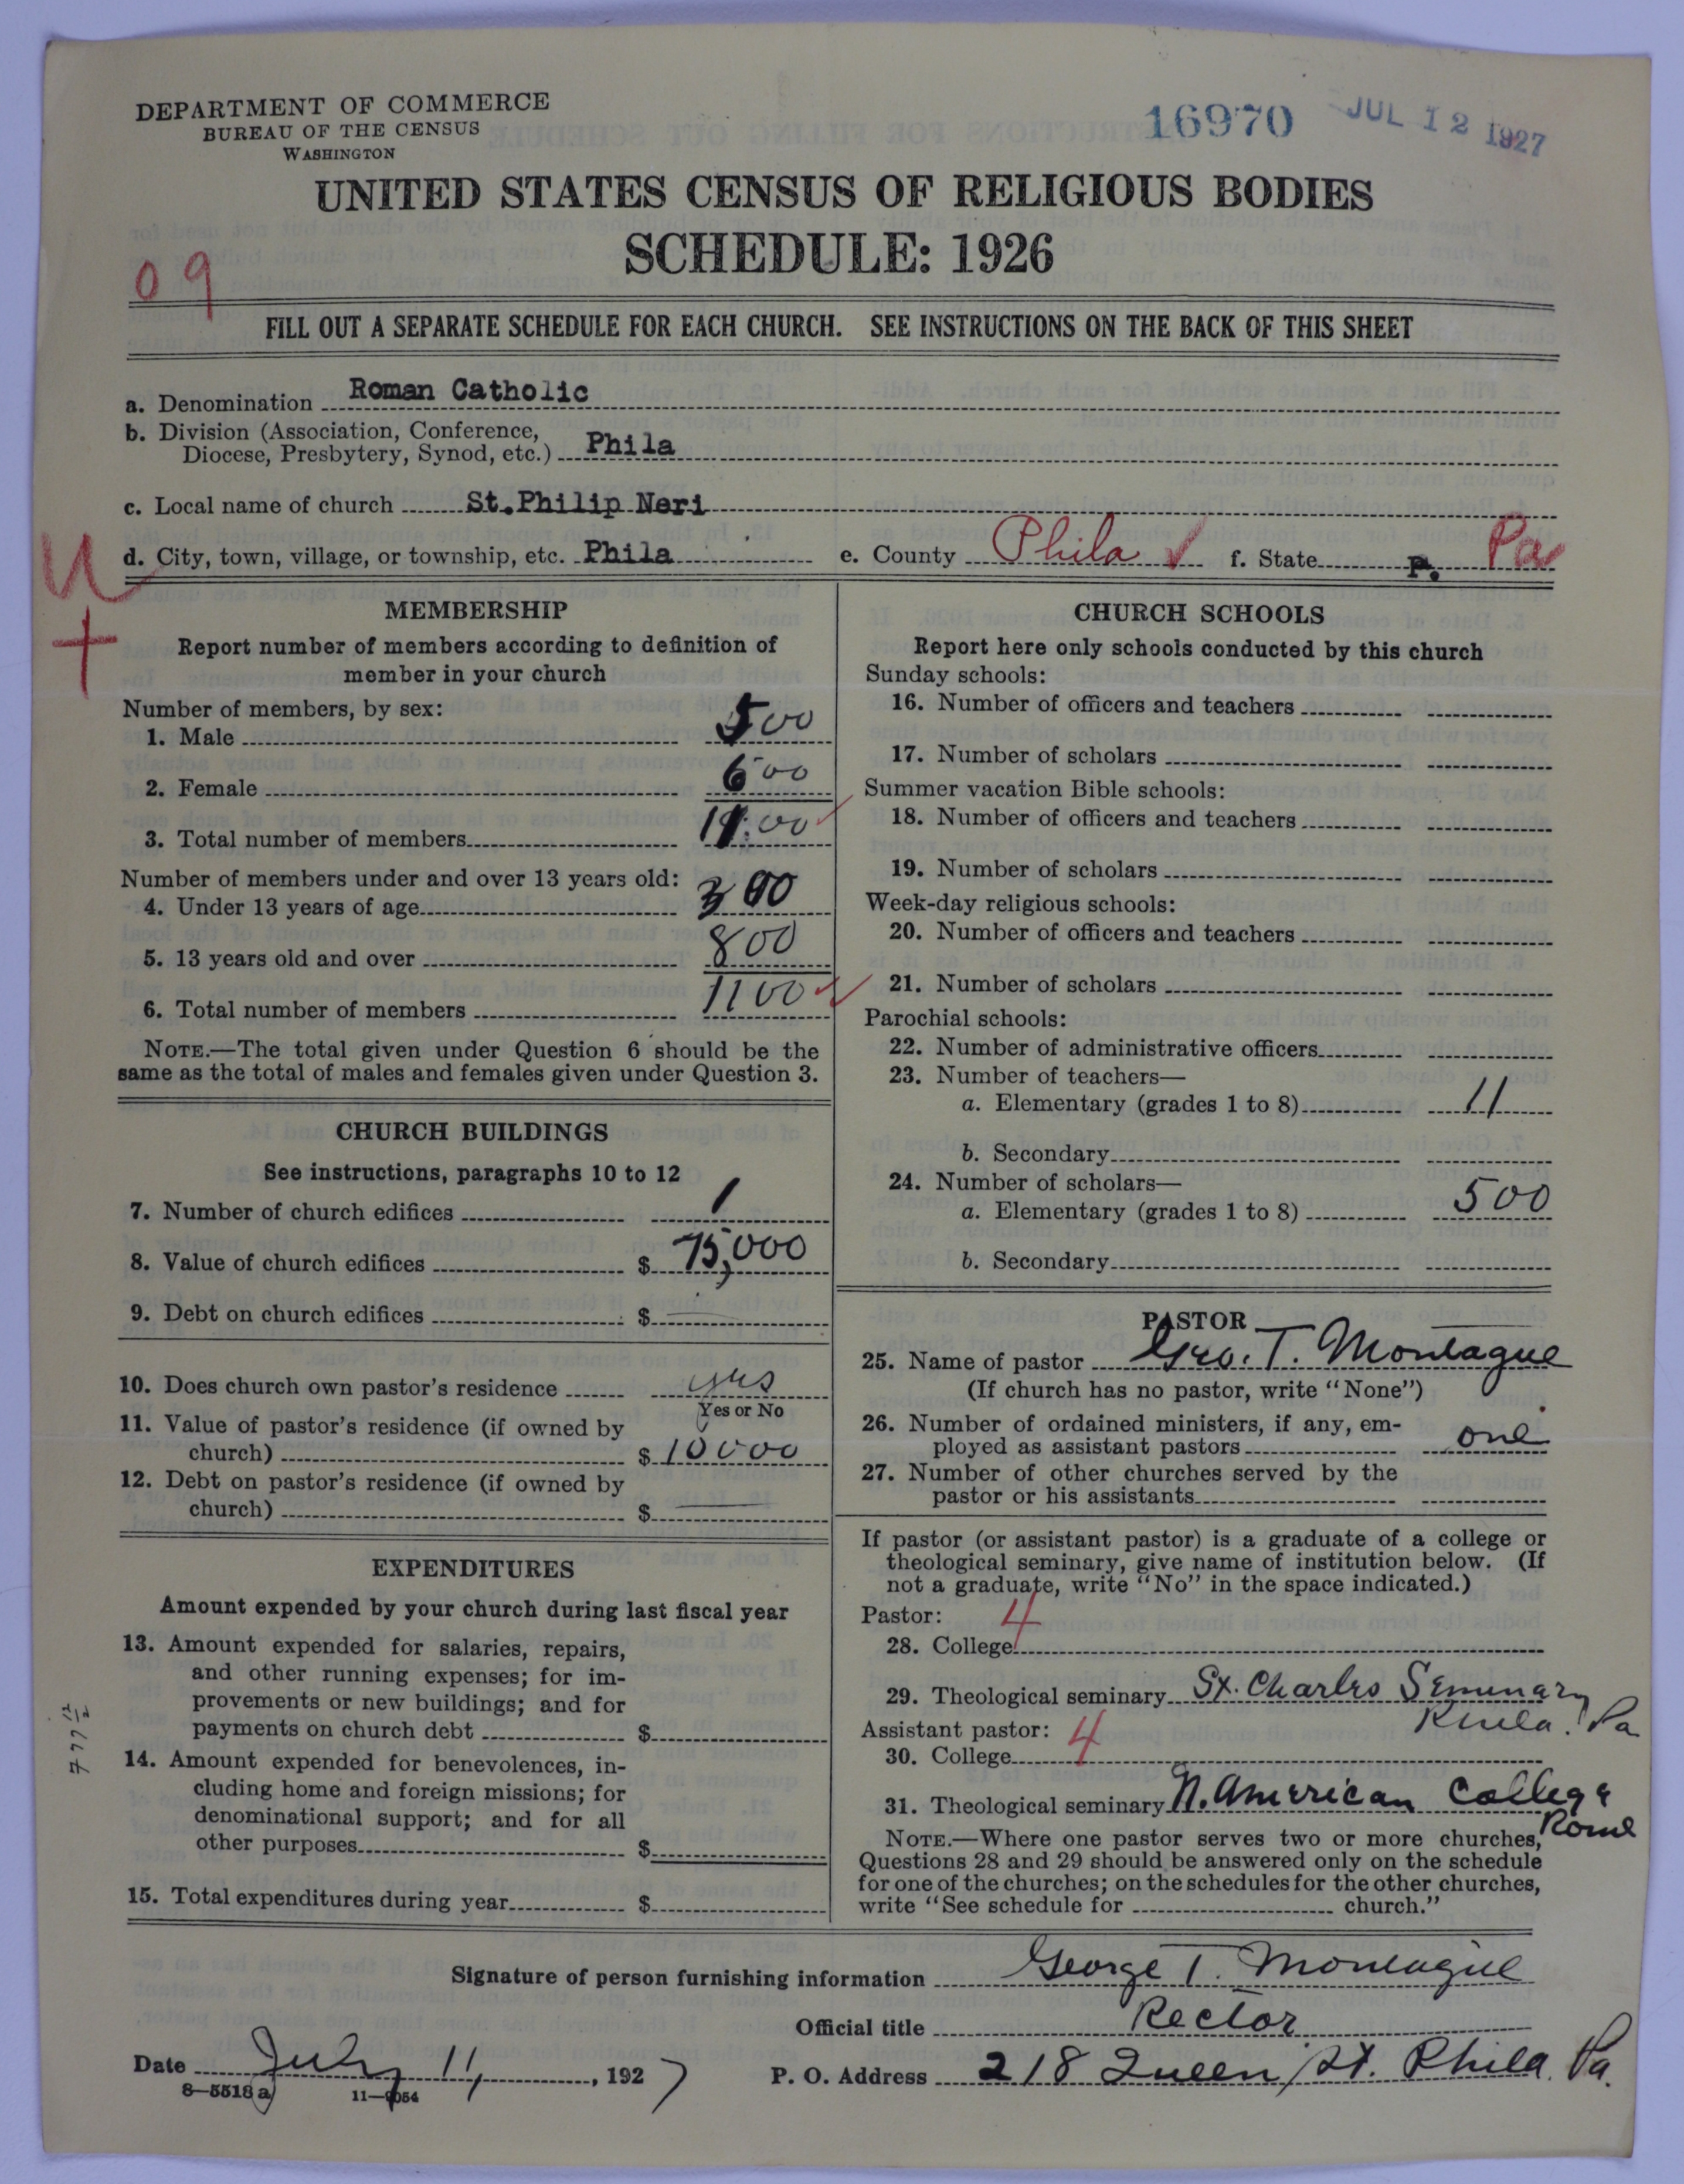 DEPARTMENT OF COMMERCE
BUREAU OF THE CENSUS
WASHINGTON
16970 JUL 12 1927
UNITED STATES CENSUS OF RELIGIOUS BODIES
SCHEDULE: 1926
09
FILL OUT A SEPARATE SCHEDULE FOR EACH CHURCH. SEE INSTRUCTIONS ON THE BACK OF THIS SHEET
a. Denomination Roman Catholic
b. Division (Association, Conference,
Diocese, Presbytery, Synod, etc.) Phila
c. Local name of church St.Philip Neri
d. City, town, village, or township, etc. Phila e. County Phila ✓ f. State P. Pa
U
MEMBERSHIP
Report number of members according to definition of
member in your church
Number of members, by sex:
1. Male 500
2. Female 600
3. Total number of members 1100 ✓
Number of members under and over 13 years old:
4. Under 13 years of age 300
5. 13 years old and over 800
6. Total number of members 1100 ✓
NOTE.—The total given under Question 6 should be the
same as the total of males and females given under Question 3.
CHURCH BUILDINGS
See instructions, paragraphs 10 to 12
7. Number of church edifices 1
8. Value of church edifices $ 75,000
9. Debt on church edifices $ —
10. Does church own pastor's residence yes
Yes or No
11. Value of pastor's residence (if owned by
church) $ 10000
12. Debt on pastor's residence (if owned by
church) $ —
EXPENDITURES
Amount expended by your church during last fiscal year
13. Amount expended for salaries, repairs,
and other running expenses; for im-
provements or new buildings; and for
payments on church debt $
14. Amount expended for benevolences, in-
cluding home and foreign missions; for
denominational support; and for all
other purposes $
15. Total expenditures during year $
CHURCH SCHOOLS
Report here only schools conducted by this church
Sunday schools:
16. Number of officers and teachers
17. Number of scholars
Summer vacation Bible schools:
18. Number of officers and teachers
19. Number of scholars
Week-day religious schools:
20. Number of officers and teachers
21. Number of scholars
Parochial schools:
22. Number of administrative officers
23. Number of teachers—
a. Elementary (grades 1 to 8) 11
b. Secondary
24. Number of scholars—
a. Elementary (grades 1 to 8) 500
b. Secondary
PASTOR
25. Name of pastor Geo. T. Montague
(If church has no pastor, write "None")
26. Number of ordained ministers, if any, em-
ployed as assistant pastors one
27. Number of other churches served by the
pastor or his assistants
If pastor (or assistant pastor) is a graduate of a college or
theological seminary, give name of institution below. (If
not a graduate, write "No" in the space indicated.)
Pastor: 4
28. College
29. Theological seminary St. Charles Seminary
Phila. Pa
Assistant pastor: 4
30. College
31. Theological seminary N. American College
Rome
NOTE.—Where one pastor serves two or more churches,
Questions 28 and 29 should be answered only on the schedule
for one of the churches; on the schedules for the other churches,
write "See schedule for church."
Signature of person furnishing information George T. Montague
Official title Rector
Date July 11, 1927 P. O. Address 218 Queen St. Phila. Pa.
8—5518 a 11—9054